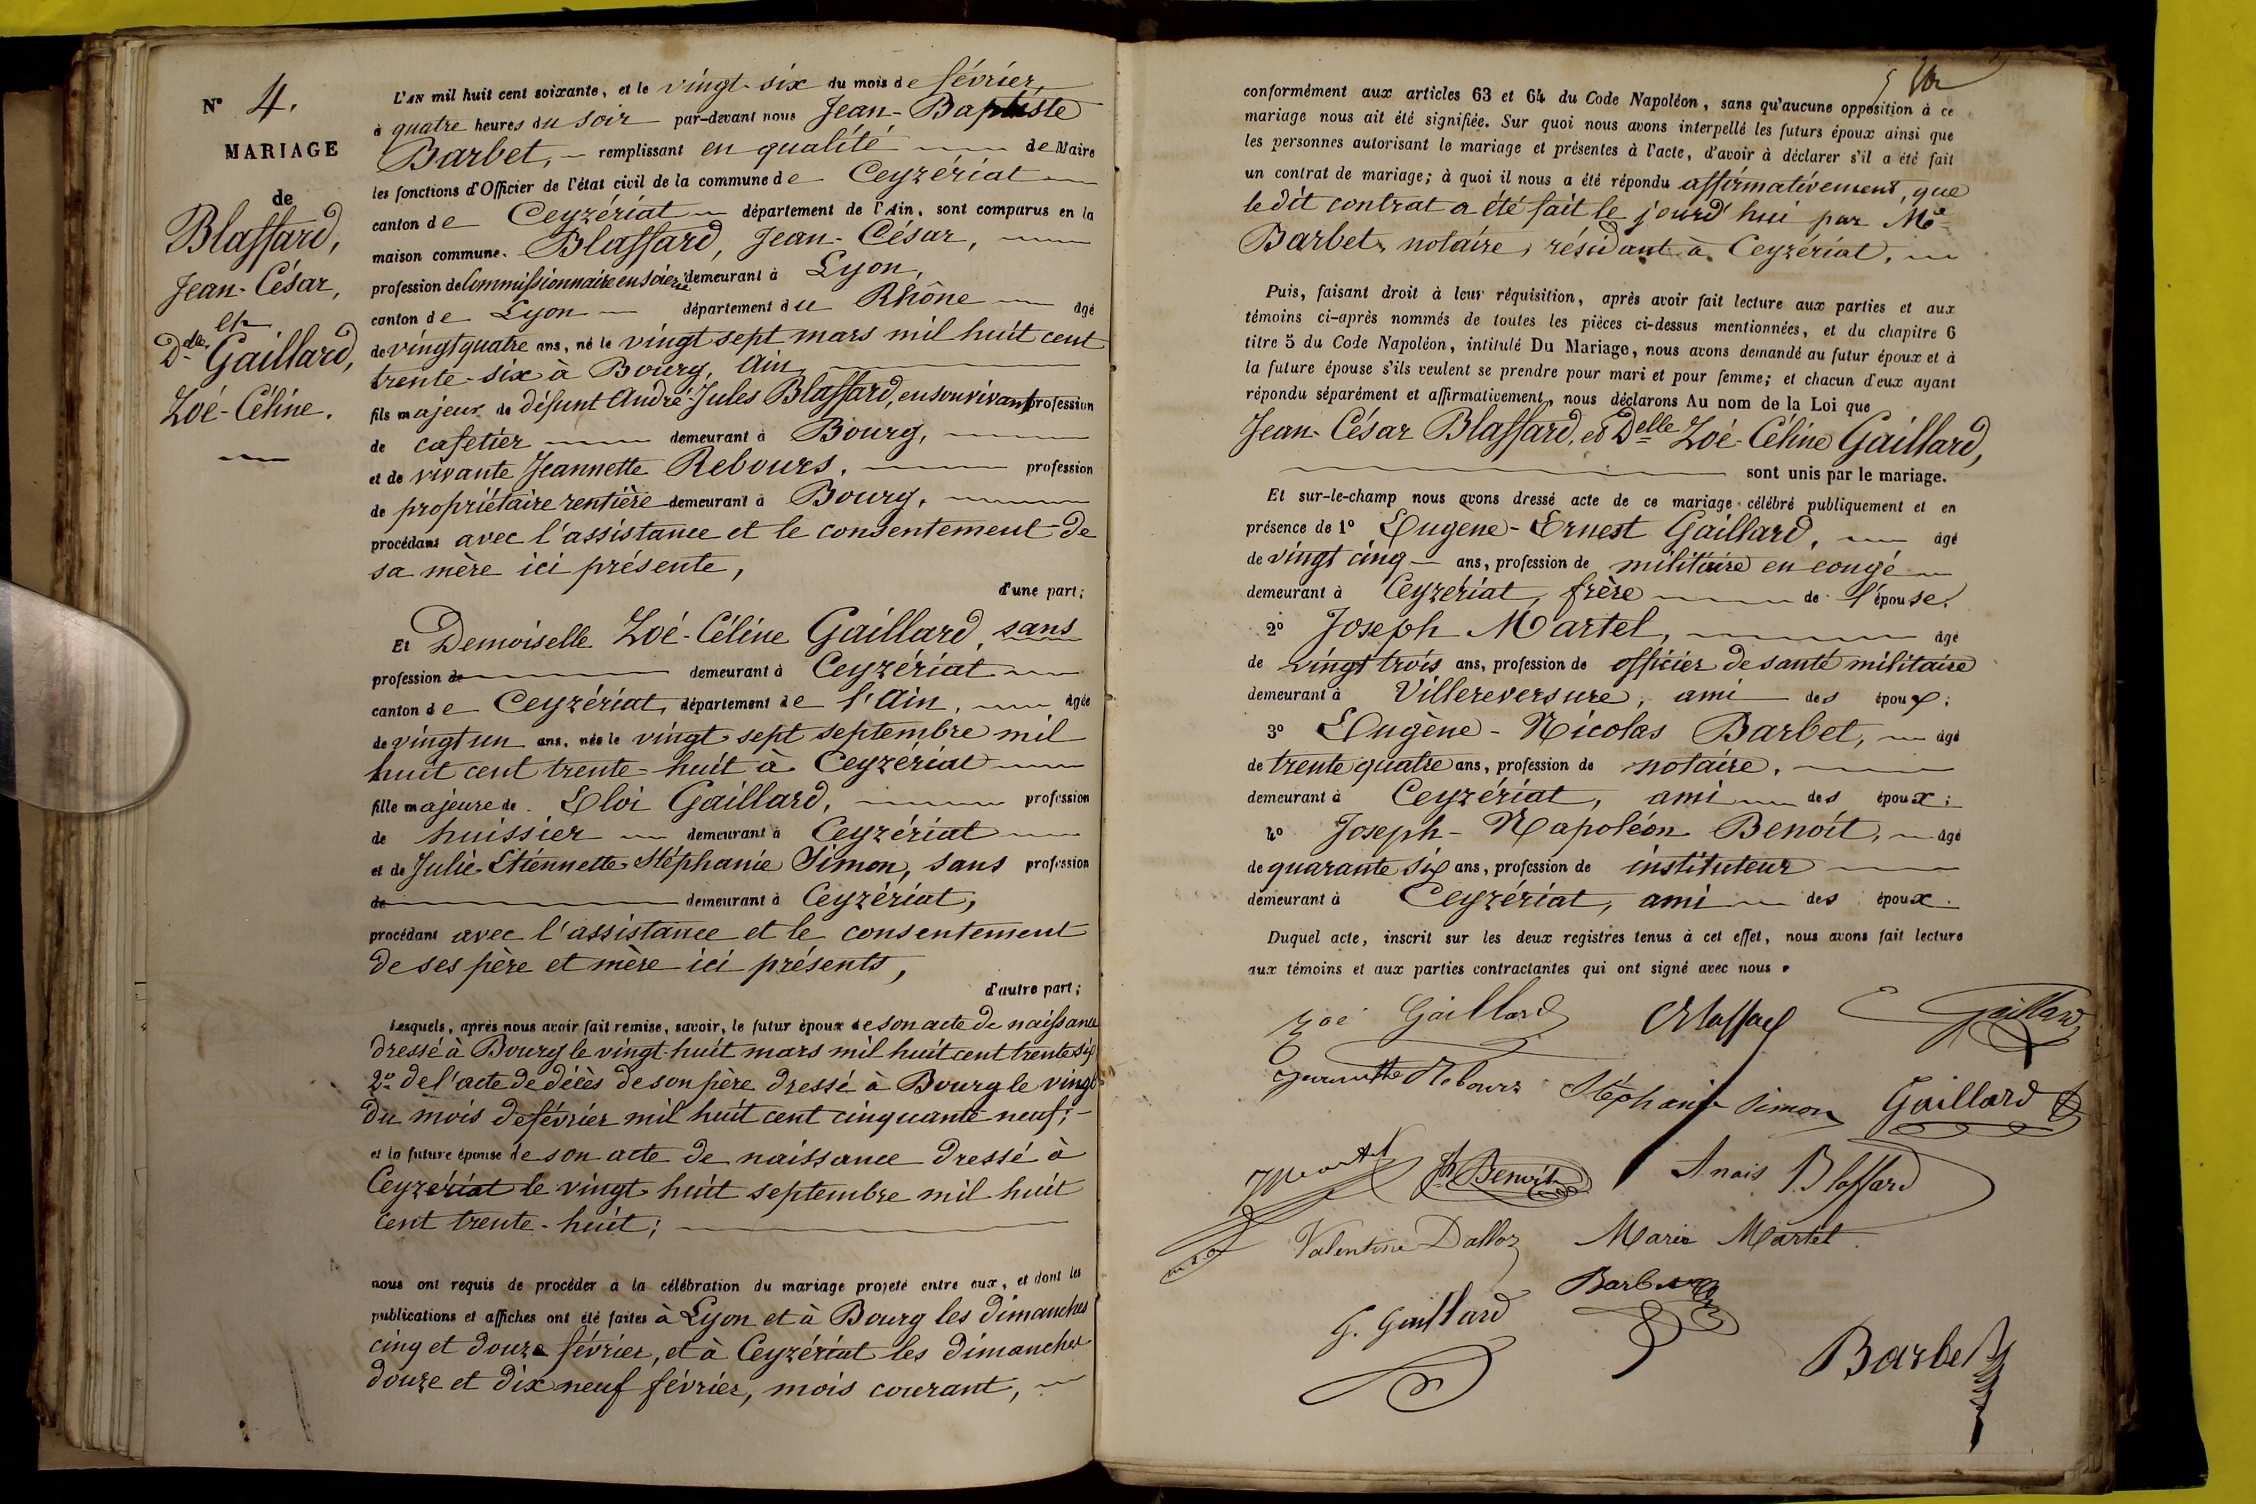 N° 4.
MARIAGE
de
Blaffard,
Jean-César,
et
Delle Gaillard,
Zoé-Céline.
L'AN mil huit cent soixante, et le vingt-six du mois de février,
à quatre heures du soir par-devant nous Jean-Baptiste
Barbet, remplissant en qualité de Maire
les fonctions d'Officier de l'état civil de la commune de Ceyzériat
canton de Ceyzériat département de l'Ain, sont comparus en la
maison commune. Blaffard, Jean-César,
profession de Commissionnaire en soierie demeurant à Lyon,
canton de Lyon département du Rhône âgé
de vingt quatre ans, né le vingt sept mars mil huit cent
trente-six à Bourg, Ain
fils majeur de défunt André-Jules Blaffard, en son vivant profession
de cafetier demeurant à Bourg,
et de vivante Jeannette Rebours, profession
de propriétaire rentière demeurant à Bourg,
procédant avec l'assistance et le consentement de
sa mère ici présente,
d'une part;
Et Demoiselle Zoé-Céline Gaillard, sans
profession de demeurant à Ceyzériat
canton de Ceyzériat, département de l'Ain, âgée
de vingt un ans, née le vingt sept septembre mil
huit cent trente-huit à Ceyzériat
fille majeure de Eloi Gaillard, profession
de huissier demeurant à Ceyzériat
et de Julie-Etiennette-Stéphanie Simon, sans profession
de demeurant à Ceyzériat,
procédant avec l'assistance et le consentement
de ses père et mère ici présents,
d'autre part;
Lesquels, après nous avoir fait remise, savoir, le futur époux de son acte de naissance
dressé à Bourg le vingt-huit mars mil huit cent trente six
2° de l'acte de décès de son père dressé à Bourg le vingt
du mois de février mil huit cent cinquante neuf;
et la future épouse de son acte de naissance dressé à
Ceyzériat le vingt-huit septembre mil huit
cent trente-huit;
nous ont requis de procéder à la célébration du mariage projeté entre eux, et dont les
publications et affiches ont été faites à Lyon et à Bourg les dimanches
cinq et douze février, et à Ceyzériat les dimanches
douze et dix neuf février, mois courant,
conformément aux articles 63 et 64 du Code Napoléon, sans qu'aucune opposition à ce
mariage nous ait été signifiée. Sur quoi nous avons interpellé les futurs époux ainsi que
les personnes autorisant le mariage et présentes à l'acte, d'avoir à déclarer s'il a été fait
un contrat de mariage; à quoi il nous a été répondu affirmativement, que
le dit contrat a été fait le jourd'hui par Me
Barbet, notaire, résidant à Ceyzériat,
Puis, faisant droit à leur réquisition, après avoir fait lecture aux parties et aux
témoins ci-après nommés de toutes les pièces ci-dessus mentionnées, et du chapitre 6
titre 5 du Code Napoléon, intitulé Du Mariage, nous avons demandé au futur époux et à
la future épouse s'ils veulent se prendre pour mari et pour femme; et chacun d'eux ayant
répondu séparément et affirmativement, nous déclarons Au nom de la Loi que
Jean-César Blaffard, et Delle Zoé-Céline Gaillard,
sont unis par le mariage.
Et sur-le-champ nous avons dressé acte de ce mariage célébré publiquement et en
présence de 1° Eugene-Ernest Gaillard, âgé
de vingt cinq ans, profession de militaire en congé
demeurant à Ceyzériat, frère de l'épouse.
2° Joseph Martel, âgé
de vingt trois ans, profession de officier de santé militaire
demeurant à Villereversure, ami des époux;
3° Eugène-Nicolas Barbet, âgé
de trente quatre ans, profession de notaire,
demeurant à Ceyzériat, ami des époux;
4° Joseph-Napoléon Benoît, âgé
de quarante six ans, profession de instituteur
demeurant à Ceyzériat, ami des époux.
Duquel acte, inscrit sur les deux registres tenus à cet effet, nous avons fait lecture
aux témoins et aux parties contractantes qui ont signé avec nous.
Zoé Gaillard Blaffard E Gaillard
Jeannette Rebours Stéphanie Simon Gaillard
J Martel Jh Benoît Anais Blaffard
Valentine Dalloz Marie Martel
G. Gaillard Barbet
Barbet